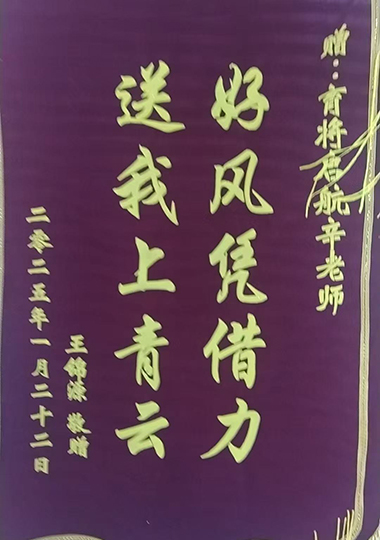 赠：育将启航辛老师
好风凭借力
送我上青云
王锦涂 敬赠
二零二五年一月二十二日